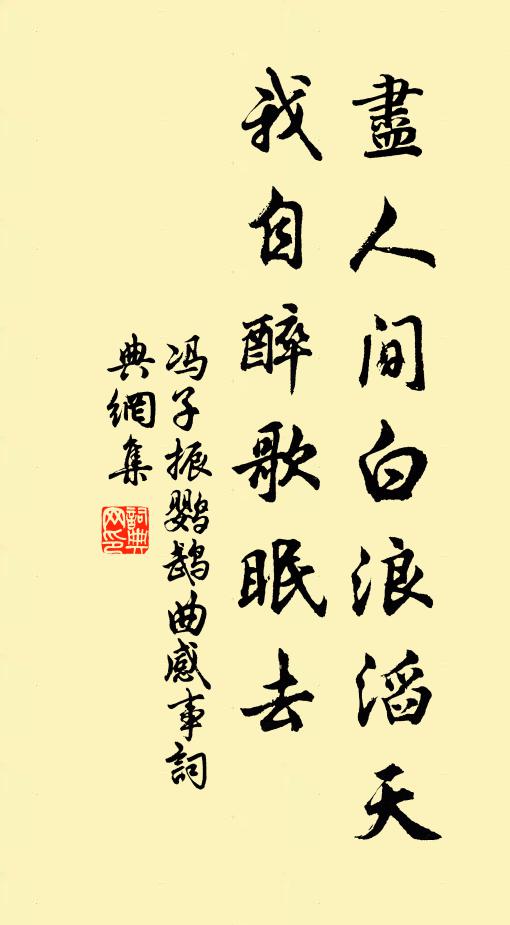 盡人间白浪滔天
我自醉歌眠去
冯子振鹦鹉曲感事詞
典網集
詞典网印